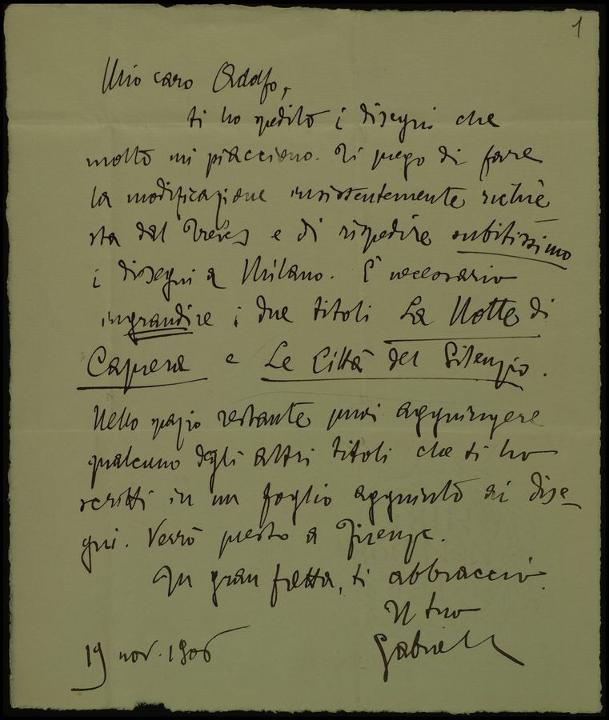 1
Mio caro Adolfo,
ti ho spedito i disegni che
molto mi piacciono. Ti prego di fare
la modificazione insistentemente richie
sta dal Treves e di rispedire subitissimo
i disegni a Milano. È necessario
ingrandire i due titoli La Notte di
Caprera e Le Città del Silenzio.
Nello spazio restante puoi aggiungere
qualcuno degli altri titoli che ti ho
scritti in un foglio aggiunto ai dise-
gni. Verrò presto a Firenze.
In gran fretta, ti abbraccio.
Il tuo
Gabriele
19 nov. 1906